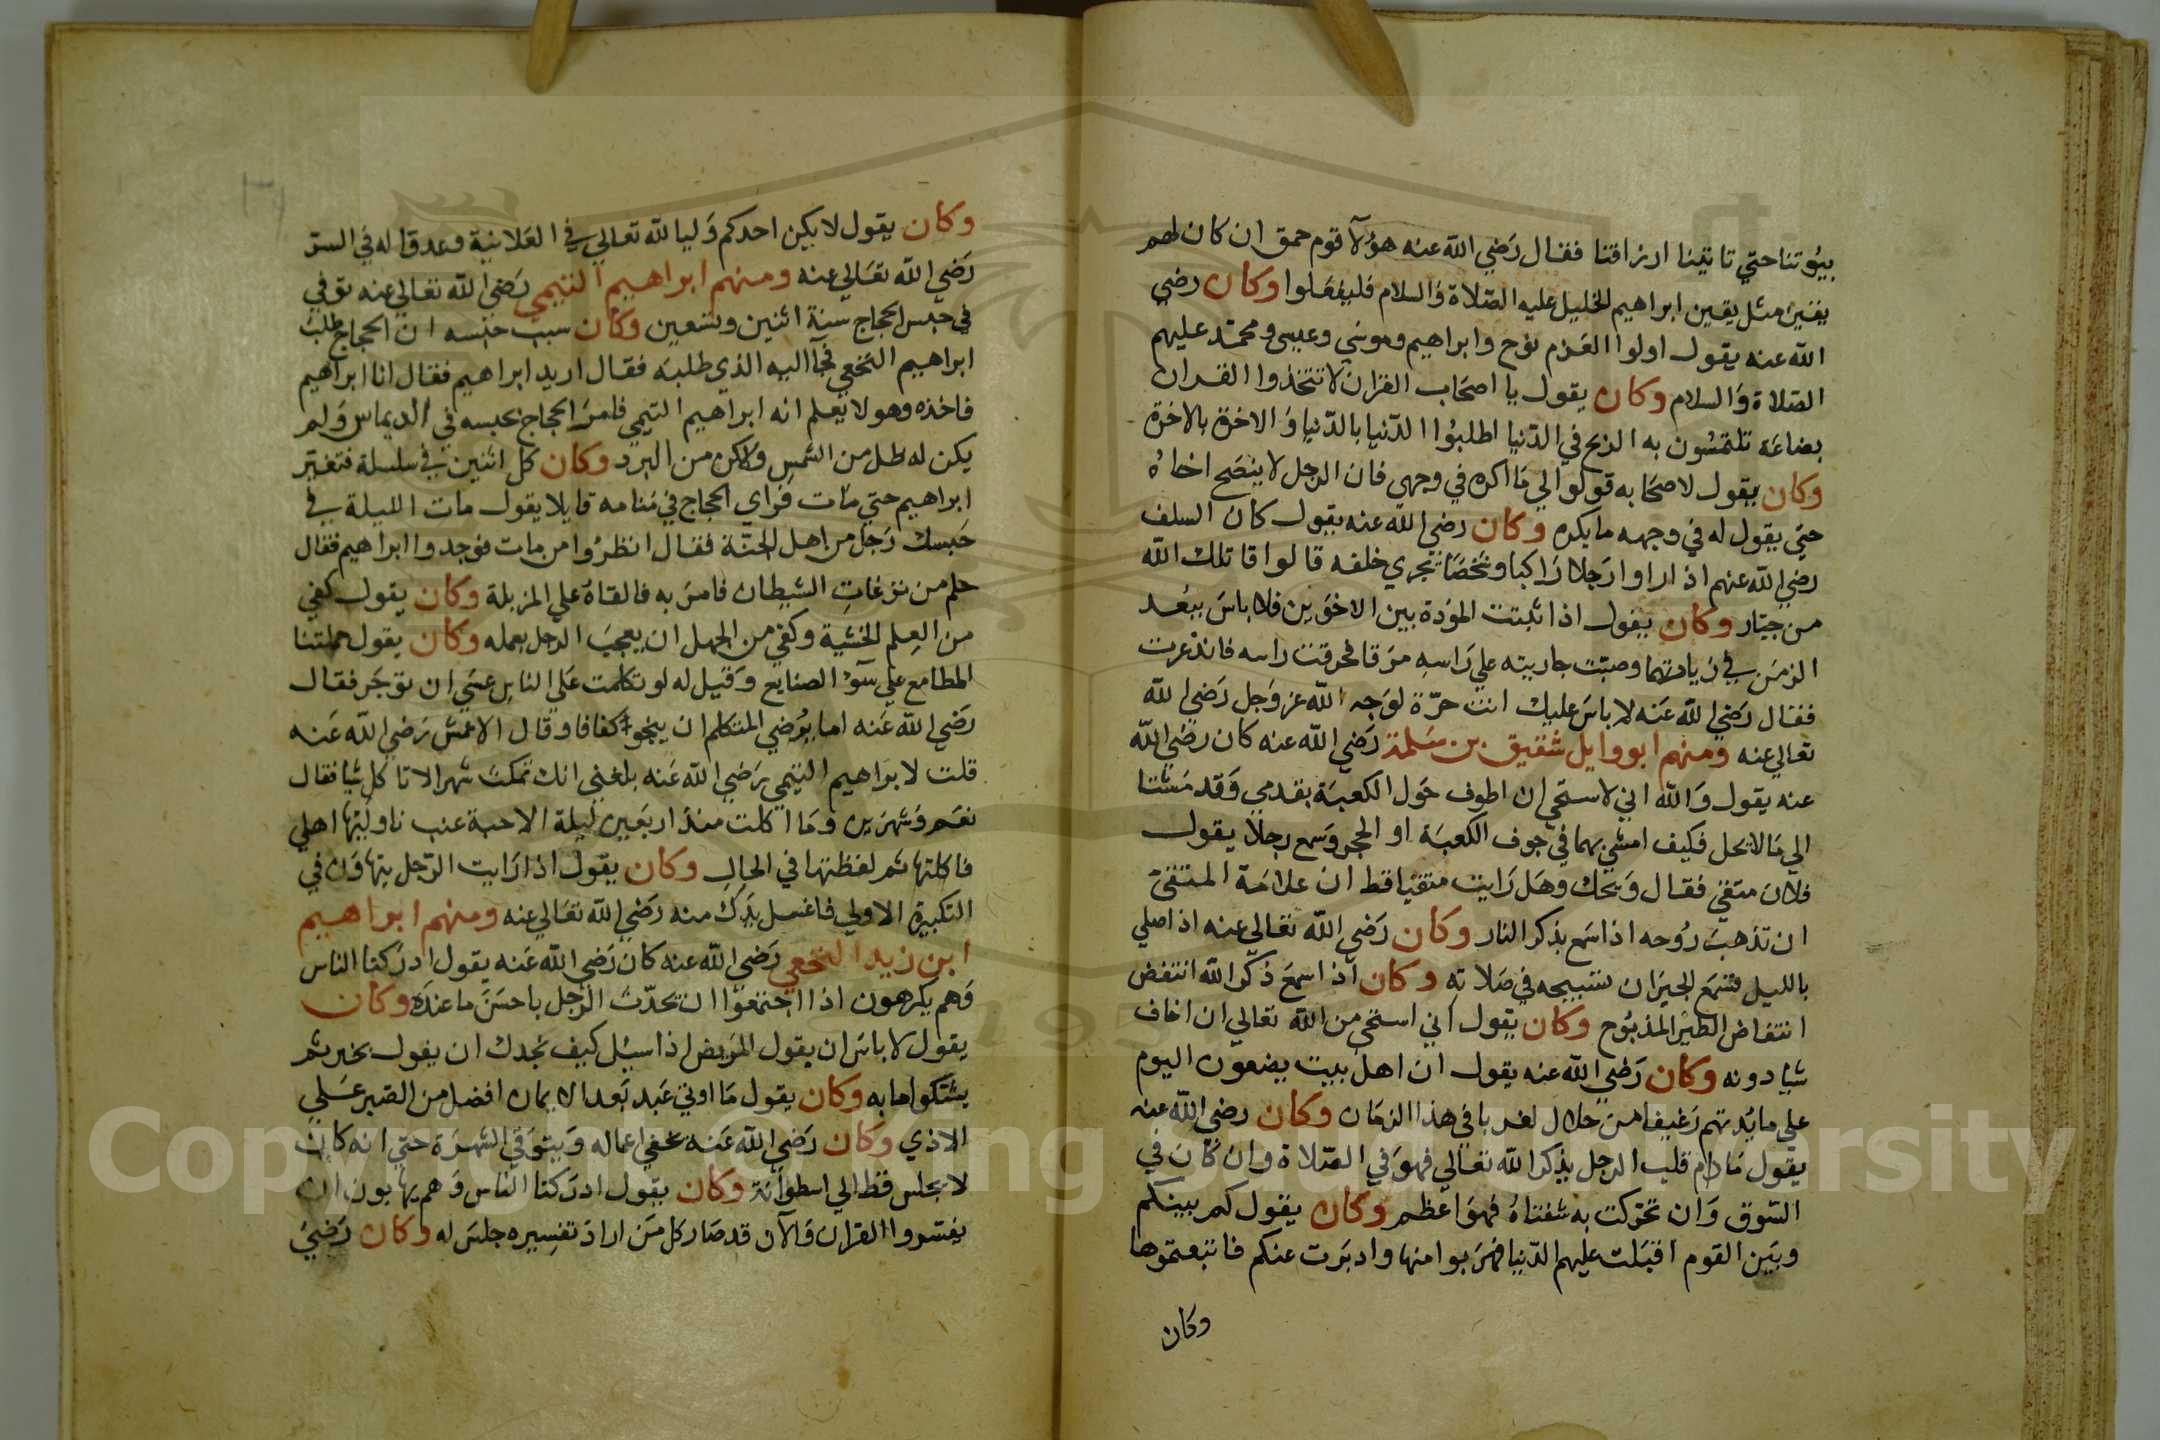 بيوتنا حتي تاتينا ارزاقنا فقال رضي الله عنه هؤلآ قوم حمق ان كان لهم
يقين مثل يقين ابراهيم الخليل عليه الصلاة والسلام فليفعلوا وكان رضي
الله عنه يقول اولوا العزم نوح وابراهيم وموسي وعيسى ومحمد عليهم
الصلاة والسلام وكان يقول يا اصحاب القران لا تتخذوا القران
بضاعة تلتمسون به الربح في الدنيا اطلبوا الدنيا بالدنيا والاخرة بالاخرة
وكان يقول لاصحابه قولوا لي ما اكره في وجهي فان الرجل لا ينصح اخاه
حتي يقول له في وجهه ما يكره وكان رضي الله عنه يقول كان السلف
رضي الله عنهم اذا راوا رجلا راكبا وشخصا يجري خلفه قالوا قاتلك الله
من جبار وكان يقول اذا ثبتت المودة بين الاخوين فلا باس ببعد
الزمن في زيادتهما وصبت جاريته علي راسه مرقا فحرقت راسه فانذعرت
فقال رضي الله عنه لا باس عليك انت حرة لوجه الله عز وجل رضي الله
تعالي عنه ومنهم ابو وايل شقيق بن سلمة رضي الله عنه كان رضي الله
عنه يقول والله اني لاستحي ان اطوف حول الكعبة بقدمي وقد مشتا
الي ما لا يحل فكيف امشي بهما في جوف الكعبة او الحجر وسمع رجلا يقول
فلان متقي فقال ويحك وهل رايت متقيا قط ان علامة المتقي
ان تذهب روحه اذا سمع بذكر النار وكان رضي الله تعالي عنه اذا صلي
بالليل فتسمع الجيران تسبيحه في صلاته وكان اذا سمع ذكر الله انتفض
انتفاض الطير المذبوح وكان يقول اني استحي من الله تعالي ان اخاف
شيا دونه وكان رضي الله عنه يقول ان اهل بيت يضعون اليوم
علي مايدتهم رغيفا من حلال لغربا في هذا الزمان وكان رضي الله عنه
يقول ما دام قلب الرجل يذكر الله تعالي فهو في الصلاة وان كان في
السوق وان تحركت به شفتاه فهو اعظم وكان يقول كم بينكم
وبين القوم اقبلت عليهم الدنيا فهربوا منها وادبرت عنكم فاتبعتموها
وكان
وكان يقول لا يكن احدكم وليا لله تعالي في العلانية وعدوا له في السر
رضي الله تعالي عنه ومنهم ابراهيم التيمي رضي الله تعالي عنه توفي
في حبس الحجاج سنة اثنين وتسعين وكان سبب حبسه ان الحجاج طلب
ابراهيم النخعي فجآ اليه الذي طلبه فقال اريد ابراهيم فقال انا ابراهيم
فاخذه وهو لا يعلم انه ابراهيم التيمي فامر الحجاج بحبسه في الديماس ولم
يكن له ظل من الشمس ولا كن من البرد وكان كل اثنين في سلسلة فتغير
ابراهيم حتي مات فراي الحجاج في منامه قايلا يقول مات الليلة في
حبسك رجل من اهل الجنة فقال انظروا من مات فوجدوا ابراهيم فقال
حلم من نزغات الشيطان فامر به فالقاه علي المزبلة وكان يقول كفي
من العلم الخشية وكفي من الجهل ان يعجب الرجل بعمله وكان يقول حملتنا
المطامع علي سوٓ الصنايع وقيل له لو تكلمت علي الناس عسي ان توجر فقال
رضي الله عنه اما يرضي المتكلم ان ينجوا كفافا وقال الاعمش رضي الله عنه
قلت لابراهيم التيمي رضي الله عنه بلغني انك تمكث شهرا لا تاكل شيا فقال
نعم وشهرين وما اكلت منذ اربعين ليلة الا حبة عنب ناولنيها اهلي
فاكلتها ثم لفظتها في الحال وكان يقول اذا رايت الرجل يتهاون في
التكبيرة الاولي فاغسل يدك منه رضي الله تعالي عنه ومنهم ابراهيم
ابن زيد النخعي رضي الله عنه كان رضي الله عنه يقول ادركنا الناس
وهم يكرهون اذا اجتمعوا ان يحدث الرجل باحسن ما عنده وكان
يقول لا باس ان يقول المريض اذا سيل كيف نجدك ان يقول بخير ثم
يشتكوا ما به وكان يقول ما اوتي عبد بعد الايمان افضل من الصبر علي
الاذي وكان رضي الله عنه يخفي اعماله ويتوقي الشهرة حتي انه كان
لا يجلس قط الي اسطوانة وكان يقول ادركنا الناس وهم يهابون ان
يفسروا القران والآن قد صار كل من اراد تفسيره جلس له وكان رضي
Copyright © King Saud University